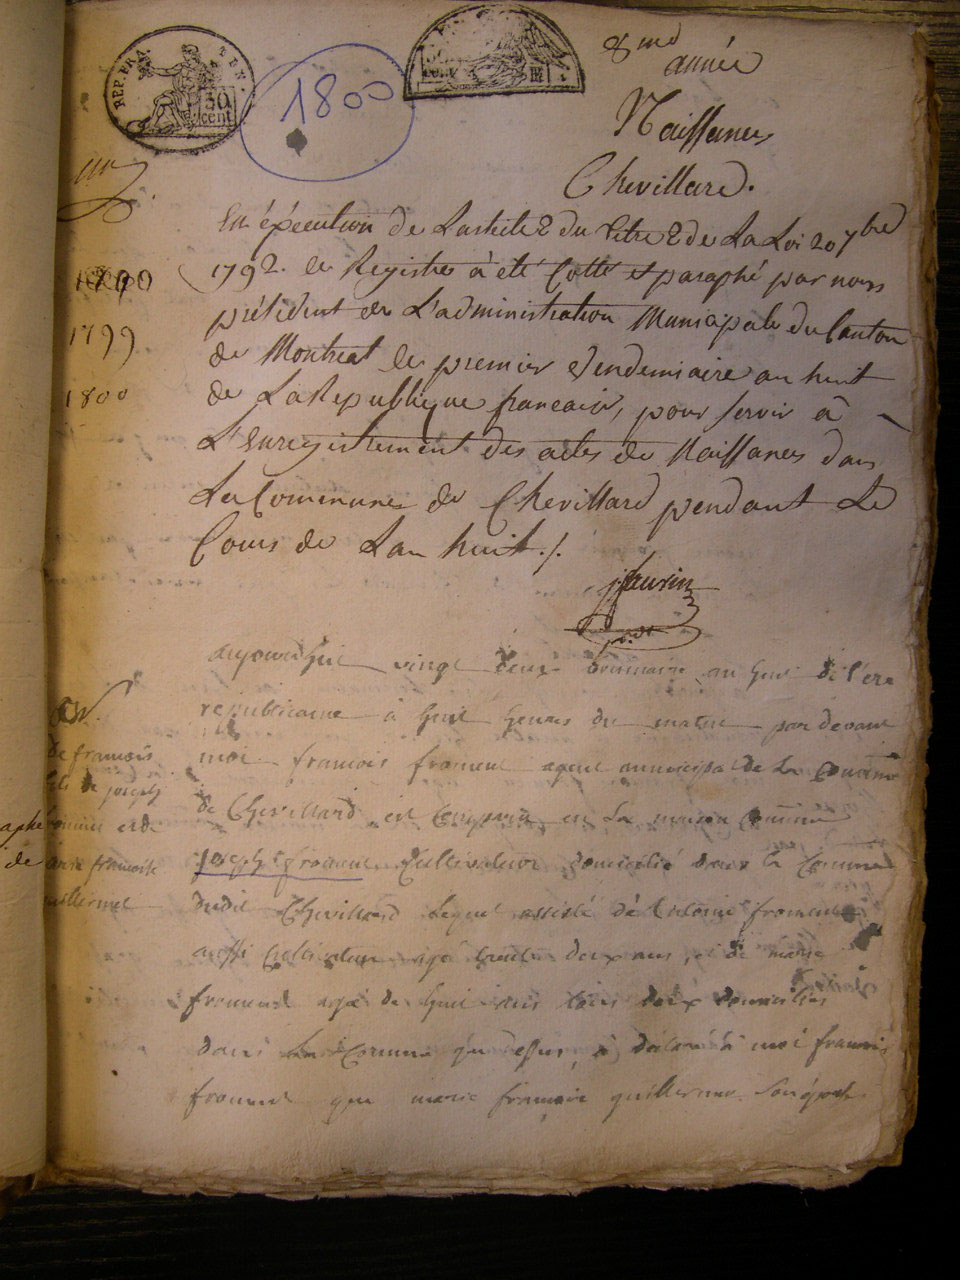 REP. FRA.
50
cent
1800
8me
année
Naissances
Chevillard.
En éxécution de L'article 2 du titre 2 de La Loi 20 7bre
1792. le Registre à été Cotté et paraphé par nous
président de L'administration Municipale du Canton
de Montreal le premier Vendemiaire an huit
de La Republique francaise, pour servir à
L'Enregistrement des actes de Naissances dans
La Commune de Chevillard pendant Le
Cours de Lan huit./.
1799
1800
aujourdhui vingt deux brumaire an huit de l'ere
republicaine à huit heures du matin par devant
moi francois froment agent municipal de La Commune
de Chevillard est comparu en La maison Commune
joseph froment Cultivateur domicilié dans la Commune
dudit Chevillard Lequel assisté de antoine froment
aussi Cultivateur agé trente deux ans, et de marie
froment agé de huit ans tous deux domiciliés
dans La Commune que dessus, à déclaré à moi francois
froment que marie francoise guillermet son épouse
de francois
fils de joseph
froment et de
marie francoise
guillermet